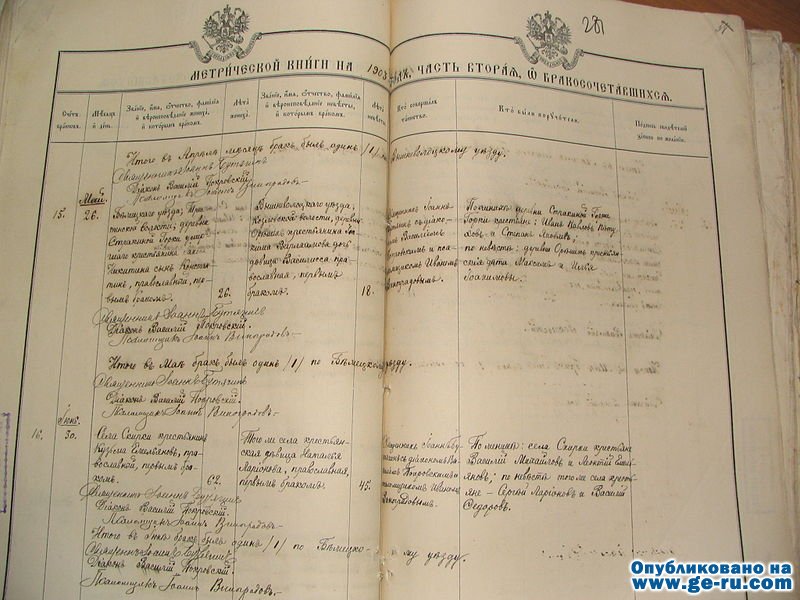 281
МЕТРИЧЕСКОЙ КНИГИ НА 1908 ГОДЪ, ЧАСТЬ ВТОРАЯ, Ѡ БРАКОСОЧЕТАВШИХСЯ.
Счетъ браковъ.
Мѣсяцъ и день.
Званіе, имя, отчество, фамилія и вѣроисповѣданіе жениха, и которымъ бракомъ.
Лѣта жениха.
Званіе, имя, отчество, фамилія и вѣроисповѣданіе невѣсты, и которымъ бракомъ.
Лѣта невѣсты.
Кто совершалъ таинство.
Кто были поручители.
Подпись свидѣтелей записи по желанію.
Итого въ Апрѣлѣ мѣсяцѣ бракъ былъ одинъ /1/ по Вышневолоцкому уѣзду.
Священникъ Іоаннъ
Діаконъ Василій Покровскій
Псаломщикъ Іоаннъ Виноградовъ
Май
15.
26.
Бѣжецкаго уѣзда,
волости, деревни
Горки
крестьянина
Никитина сынъ
православный, пер-
вымъ бракомъ.
26.
Вышневолоцкаго уѣзда,
Козловской волости, деревни
крестьянина
Варлаамова дочь
дѣвица Василисса пра-
вославная, первымъ
бракомъ.
18.
Священникъ Іоаннъ
съ діако-
номъ Василіемъ
Покровскимъ и пса-
ломщикомъ Иваномъ
Виноградовымъ.
По женихѣ: деревни
Горки крестьяне: Иванъ Павловъ
и Степанъ Яковлевъ;
по невѣстѣ: деревни
дѣти Максимъ и Илья
Священникъ Іоаннъ
Діаконъ Василій Покровскій.
Псаломщикъ Іоаннъ Виноградовъ
Итого въ Маѣ бракъ былъ одинъ /1/ по Бѣжецкому уѣзду.
Священникъ Іоаннъ
Діаконъ Василій Покровскій.
Псаломщикъ Іоаннъ Виноградовъ
Іюнь
16.
30.
Села Скирки крестьянинъ
Кузьма Емельяновъ, пра-
вославный, первымъ бра-
комъ.
62.
Того же села крестьян-
ская дѣвица Наталья
Ларіонова, православная,
первымъ бракомъ.
45.
Священникъ Іоаннъ
съ діакономъ
Покровскимъ и
псаломщикомъ Иваномъ
Виноградовымъ.
По женихѣ: села Скирки крестьяне
Василій Михайловъ и
по невѣстѣ: того же села кресть-
яне – Сергѣй Ларіоновъ и Василій
Ѳедоровъ.
Священникъ Іоаннъ
Діаконъ Василій Покровскій.
Псаломщикъ Іоаннъ Виноградовъ
Итого въ Іюнѣ бракъ былъ одинъ /1/ по Бѣжецкому уѣзду.
Священникъ Іоаннъ
Діаконъ Василій Покровскій.
Псаломщикъ Іоаннъ Виноградовъ
Опубликовано на
www.ge-ru.com